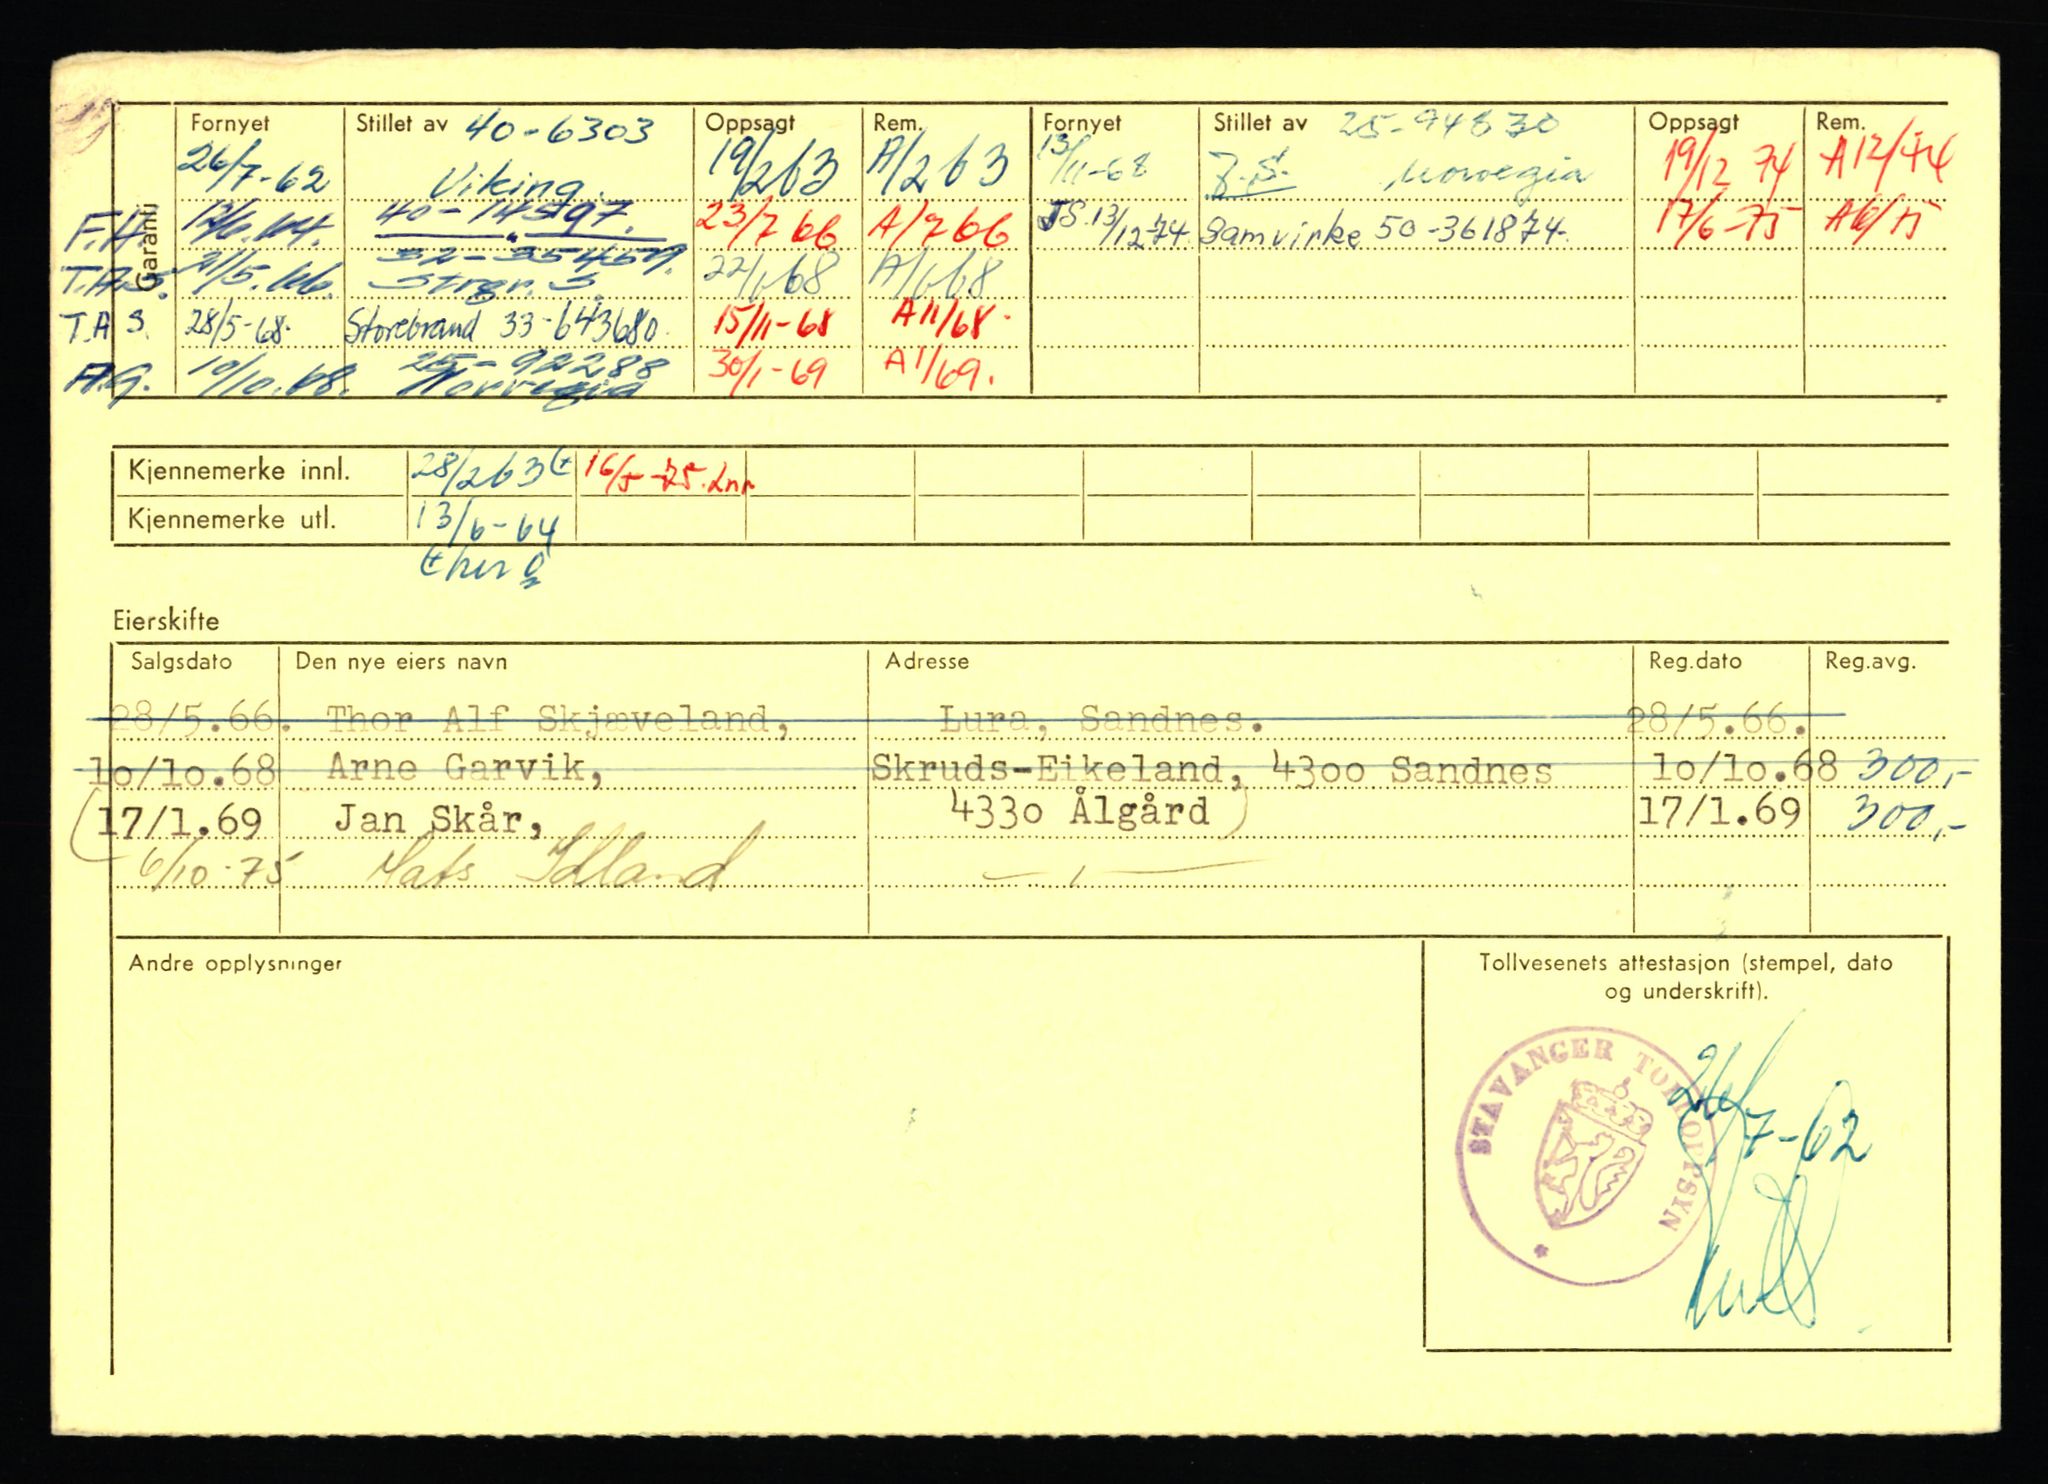 Garanti
Fornyet Stillet av 40-6303 Oppsagt Rem. Fornyet Stillet av 25-94830 Oppsagt Rem.
26/7-62 Viking. 19/2 63 A/2 63 13/11-68 J.S. Norvegia 19/12 74 A12/74
F.H. 12/6.64. 40-14597. 23/7 66 A/7 66 J.S. 13/12-74 Samvirke 50-361874. 17/6-75 A6/75
T.A.S. 21/5.66. 32-35469. Strgr. S. 22/6 68 A/6 68
T.A S. 28/5-68. Storebrand 33-643680. 15/11-68 A11/68.
A.G. 10/10.68. 25-92288 Norvegia 30/1-69 A1/69.
Kjennemerke innl. 28/2 63 16/5-75. Lnr
Kjennemerke utl. 13/6-64
Eierskifte
Salgsdato Den nye eiers navn Adresse Reg.dato Reg.avg.
28/5.66. Thor Alf Skjæveland, Lura, Sandnes. 28/5.66.
10/10.68 Arne Garvik, Skruds-Eikeland, 4300 Sandnes 10/10.68 300,-
(17/1.69 Jan Skår, 4330 Ålgård) 17/1.69 300,-
6/10-75 Mats Idland — ı —
Andre opplysninger
Tollvesenets attestasjon (stempel, dato
og underskrift).
STAVANGER TOLLOPPSYN
26/7-62